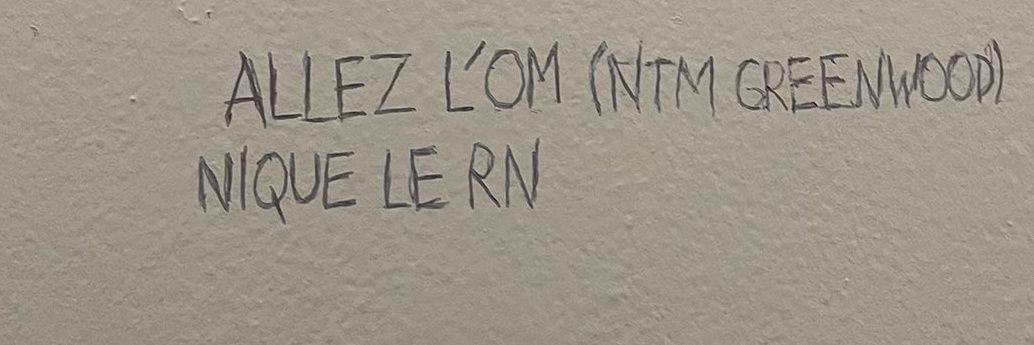 ALLEZ L'OM (NTM GREENWOOD)
NIQUE LE RN